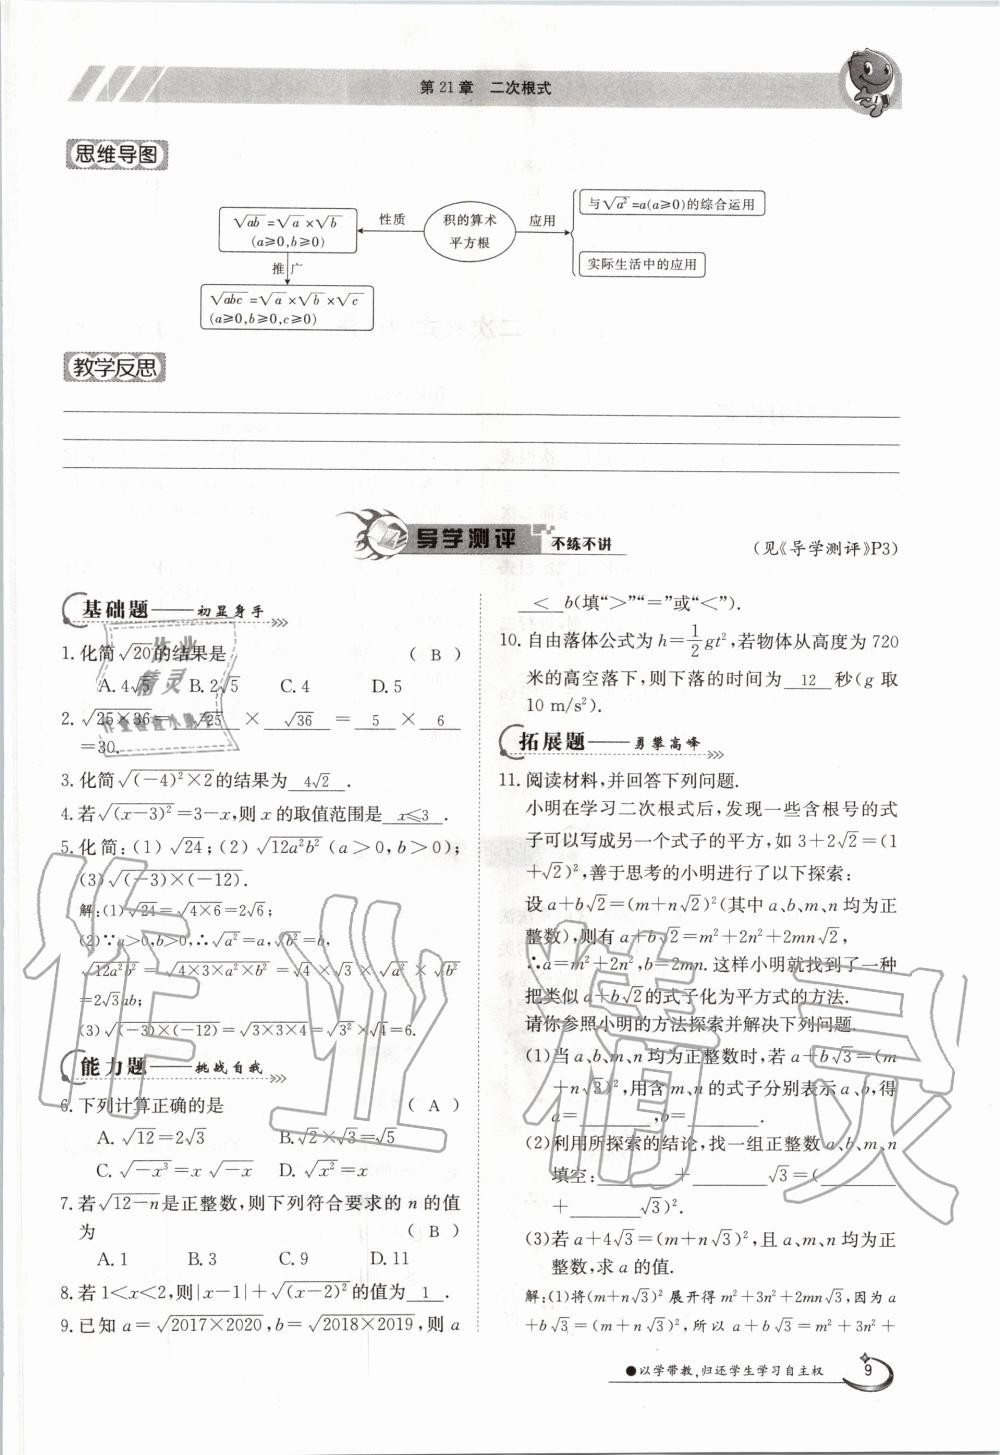 第21章 二次根式
思维导图
√ab =√a ×√b
(a≥0,b≥0)
性质
积的算术
平方根
应用
与√a² =a(a≥0)的综合运用
实际生活中的应用
推广
√abc =√a ×√b ×√c
(a≥0,b≥0,c≥0)
教学反思
导学测评 不练不讲
(见《导学测评》P3)
基础题——初显身手
1.化简√20的结果是 ( B )
A.4√5 B.2√5 C.4 D.5
2.√25×36= √25 × √36 = 5 × 6
=30.
3.化简√(-4)²×2的结果为 4√2 .
4.若√(x-3)²=3-x,则x的取值范围是 x≤3 .
5.化简:(1)√24;(2)√12a²b²(a>0,b>0);
(3)√(-3)×(-12).
解:(1)√24=√4×6=2√6;
(2)∵a>0,b>0,∴√a²=a,√b²=b,
√12a²b²=√4×3×a²×b²=√4×√3×√a²×√b²
=2√3ab;
(3)√(-3)×(-12)=√3×3×4=√3²×√4=6.
能力题——挑战自我
6.下列计算正确的是 ( A )
A.√12=2√3 B.√2×√3=√5
C.√-x³=x√-x D.√x²=x
7.若√12-n是正整数,则下列符合要求的n的值
为 ( B )
A.1 B.3 C.9 D.11
8.若1<x<2,则|x-1|+√(x-2)²的值为 1 .
9.已知a=√2017×2020,b=√2018×2019,则a
< b(填“>”“=”或“<”).
10.自由落体公式为h=1/2gt²,若物体从高度为720
米的高空落下,则下落的时间为 12 秒(g取
10 m/s²).
拓展题——勇攀高峰
11.阅读材料,并回答下列问题.
小明在学习二次根式后,发现一些含根号的式
子可以写成另一个式子的平方,如3+2√2=(1
+√2)²,善于思考的小明进行了以下探索:
设a+b√2=(m+n√2)²(其中a、b、m、n均为正
整数),则有a+b√2=m²+2n²+2mn√2,
∴a=m²+2n²,b=2mn.这样小明就找到了一种
把类似a+b√2的式子化为平方式的方法.
请你参照小明的方法探索并解决下列问题.
(1)当a、b、m、n均为正整数时,若a+b√3=(m
+n√3)²,用含m、n的式子分别表示a、b,得
a=______,b=______.
(2)利用所探索的结论,找一组正整数a、b、m、n
填空:______+______√3=(______
+______√3)².
(3)若a+4√3=(m+n√3)²,且a、m、n均为正
整数,求a的值.
解:(1)将(m+n√3)²展开得m²+3n²+2mn√3,因为a
+b√3=(m+n√3)²,所以a+b√3=m²+3n²+
●以学带教,归还学生学习自主权
9
作业精灵